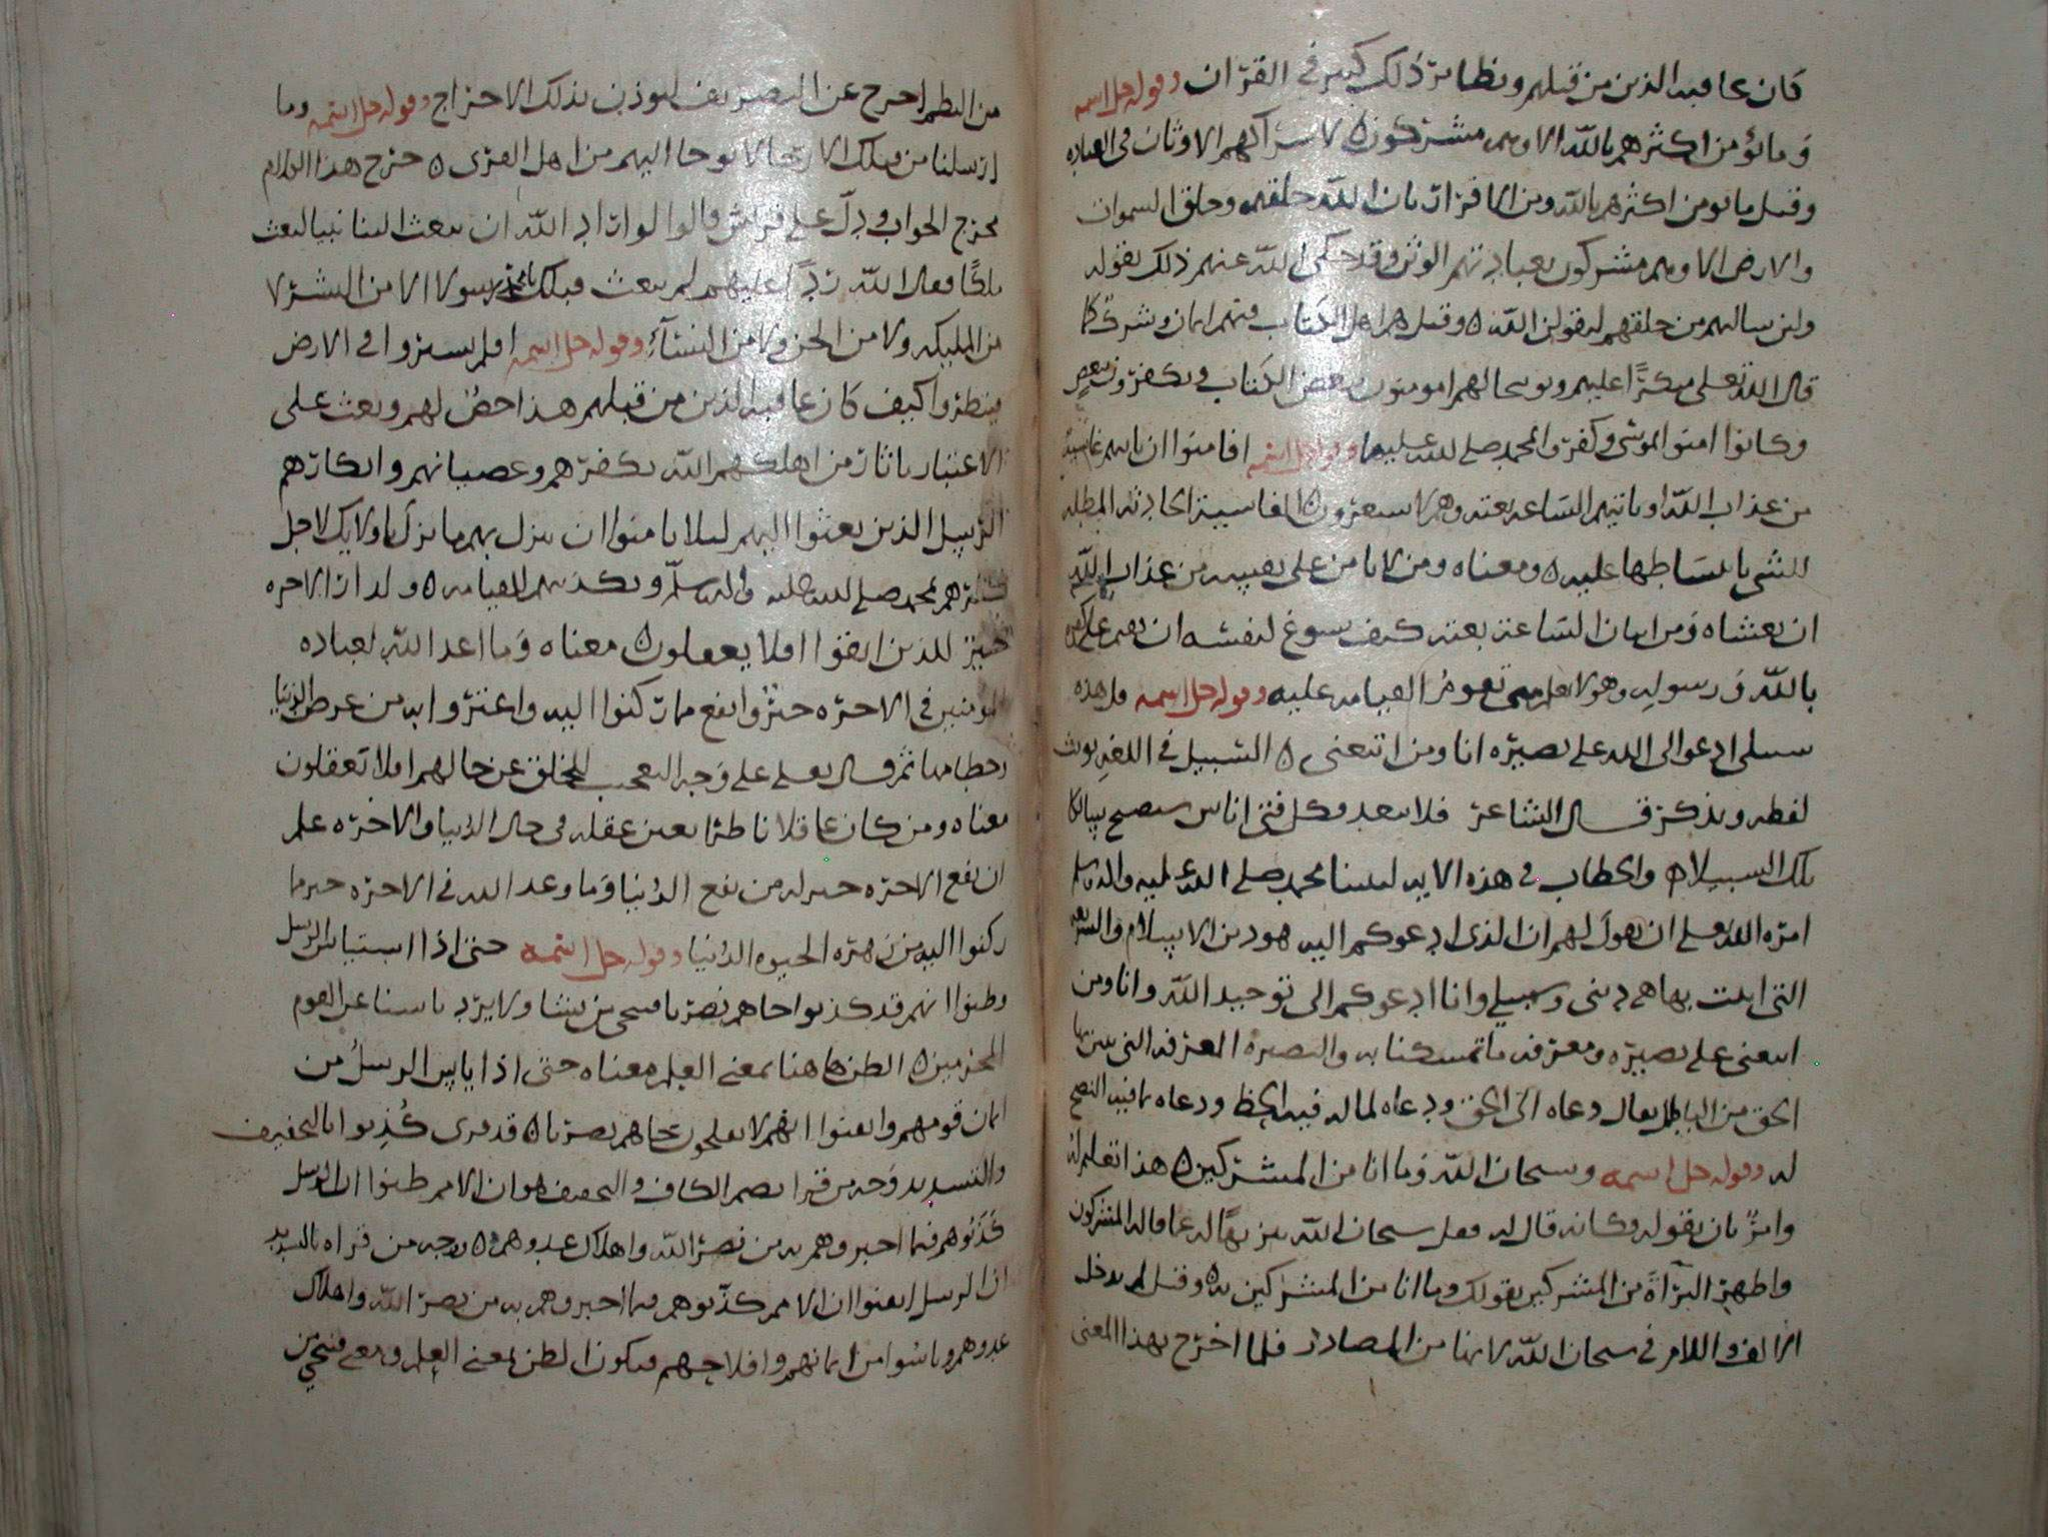 كان عاقبه الذين من قبلهم ونظائر ذلك كثير في القران وقوله جل اسمه
وما يؤمن اكثرهم بالله الا وهم مشركون لاشراكهم الاوثان في العباده
وقيل ما يومن اكثرهم بالله من الاقرار بان الله خلقهم وخلق السموات
والارض الا وهم مشركون بعبادتهم الوثن وقد حكى الله عنهم ذلك بقوله
ولئن سالتهم من خلقهم ليقولن الله وقيل هم اهل الكتاب فيهم ايمان وشرك كما
قال الله تعلى منكرًا عليهم وتوبيخا لهم افتومنون ببعض الكتاب وتكفرون ببعض
وكانوا امنوا بموسى وكفروا بمحمد صلى الله عليهما وقوله جل اسمه افامنوا ان تاتيهم غاشية
من عذاب الله او تاتيهم الساعه بغته وهم لا يشعرون الغاشية الحادثه المظله
للشي بانبساطها عليه ومعناه ومن لا يامن على نفسه من عذاب الله
ان يغشاه ومن اتيان الساعة بغته كيف يسوغ لنفسه ان يقيم على كفره
بالله ورسوله وهو لا يعلم متى تقوم القيامه عليه وقوله جل اسمه قل هذه
سبيلي ادعوا الى الله على بصيره انا ومن اتبعني السبيل في اللغه يونث
لفظه ويذكر قال الشاعر فلا تبعد فكل فتى اناس سيصبح سالكا
تلك السبيلا والخطاب في هذه الايه لنبينا محمد صلى الله عليه واله وسلم
امره الله تعلى ان يقول لهم ان الذي ادعوكم اليه هو دين الاسلام والشريعه
التي اتيت بها هي ديني وسبيلي وانا ادعوكم الى توحيد الله وانا ومن
اتبعني على بصيره ومعرفه ما تمسكنا به والبصيرة المعرفه التي يتبين بها
الحق من الباطل يقال دعاه الى الحق ودعاه لما له فيه الحظ ودعاه بما فيه النصح
له وقوله جل اسمه وسبحان الله وما انا من المشركين هذا تعليم له
وامر بان يقوله وكانه قال له فقل سبحان الله تنزيهًا له عما قاله المشركون
واظهر البرآة من المشركين بقولك وما انا من المشركين به وقيل لم يدخل
الالف واللام في سبحان الله لانها من المصادر فلما اخرج بهذا المعنى
من النظم اخرج عن التصريف ليوذن بذلك الاخراج وقوله جل اسمه وما
ارسلنا من قبلك الا رجالا نوحا اليهم من اهل القرى خرج هذا الكلام
مخرج الجواب ودل على قريش قالوا لو اراد الله ان يبعث الينا نبيا لبعث
ملكًا فقال الله ردًا عليهم لم يبعث قبلك يا محمد رسولا الا من البشر لا
من المليكه ولا من الجن ولا من النسآء وقوله جل اسمه افلم يسيروا في الارض
فينظروا كيف كان عاقبه الذين من قبلهم هذا حض لهم وبعث على
الاعتبار باثار من اهلكهم الله بكفرهم وعصيانهم وانكارهم
الرسل الذين بعثوا اليهم ليلا يامنوا ان ينزل بهم ما نزل باولايك لاجل
كفرهم بمحمد صلى الله عليه واله وسلم وتكذيبهم بالقيامه ولدار الاخره
خير للذين اتقوا افلا يعقلون معناه وما اعد الله لعباده
المومنين في الاخره خير وانفع مما ركنوا اليه واغتروا به من عرض الدنيا
وحطامها ثم قال تعلى على وجه التعجب للخلق عن حالهم افلا تعقلون
معناه ومن كان عاقلا ناظرًا بعين عقله في حال الدنيا والاخره علم
ان نفع الاخره خير له من نفع الدنيا وما وعد الله في الاخره خير مما
ركنوا اليه من زهره الحيوه الدنيا وقوله جل اسمه حتى اذا استياس الرسل
وظنوا انهم قد كذبوا جاهم نصرنا فنجي من نشا ولا يرد باسنا عن القوم
المجرمين الظن هاهنا بمعنى العلم معناه حتى اذا يايس الرسل من
ايمان قومهم وايقنوا انهم لا يفلحون جاهم نصرنا قد قرى كُذِبوا بالتخفيف
والتشديد وجه من قرا بضم الكاف والتخفيف هو ان الامم ظنوا ان الرسل
كذبوهم فيما اخبروهم به من نصر الله واهلاك عدوهم ووجه من قراه بالتشديد
ان الرسل ايقنوا ان الامم كذّبوهم فيما اخبروهم به من نصر الله واهلاك
عدوهم ويائسوا من ايمانهم وافلاحهم فيكون الظن بمعنى العلم ومعنى فنجي من